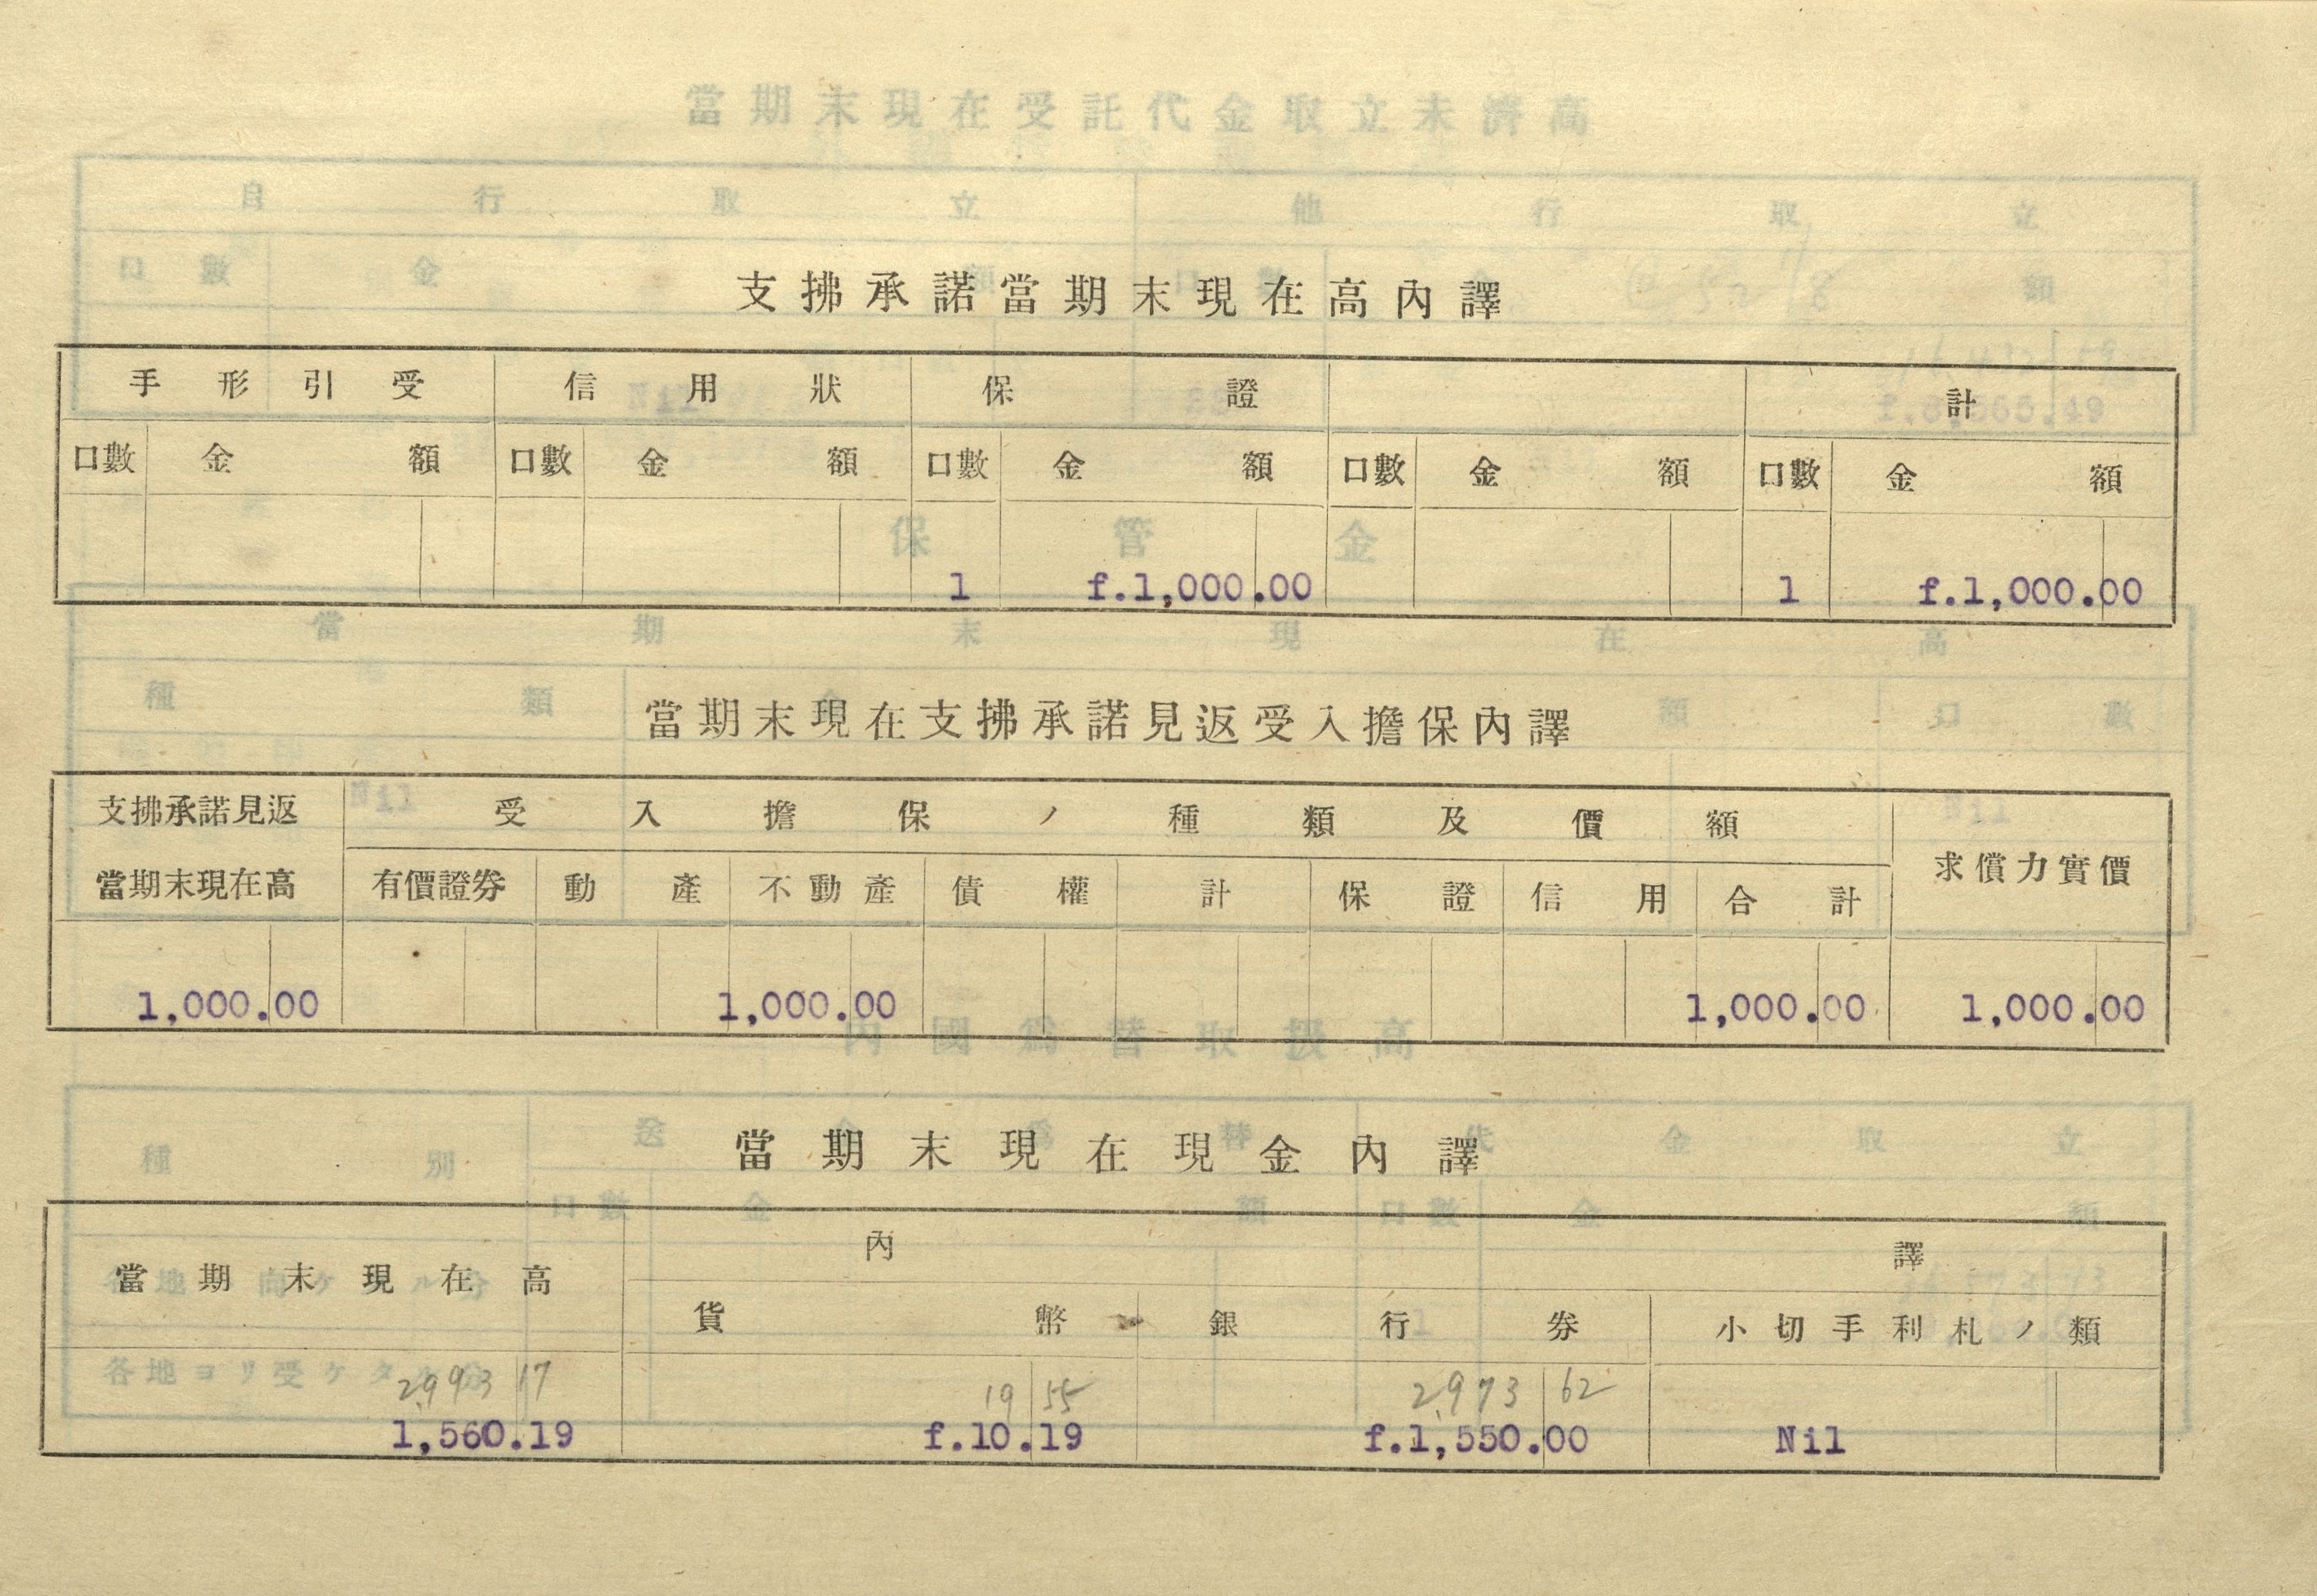 支拂承諾當期末現在高內譯
手形引受 信用狀 保證 計
口數 金額 口數 金額 口數 金額 口數 金額 口數 金額
1 f.1,000.00 1 f.1,000.00
當期末現在支拂承諾見返受入擔保內譯
支拂承諾見返 受入擔保ノ種類及價額
當期末現在高 有價證券 動產 不動產 債權 計 保證 信用 合計 求償力實價
1,000.00 1,000.00 1,000.00 1,000.00
當期末現在現金內譯
當期末現在高 內譯
貨幣 銀行券 小切手利札ノ類
2,993 17 19 55 2,973 62
1,560.19 f.10.19 f.1,550.00 Nil